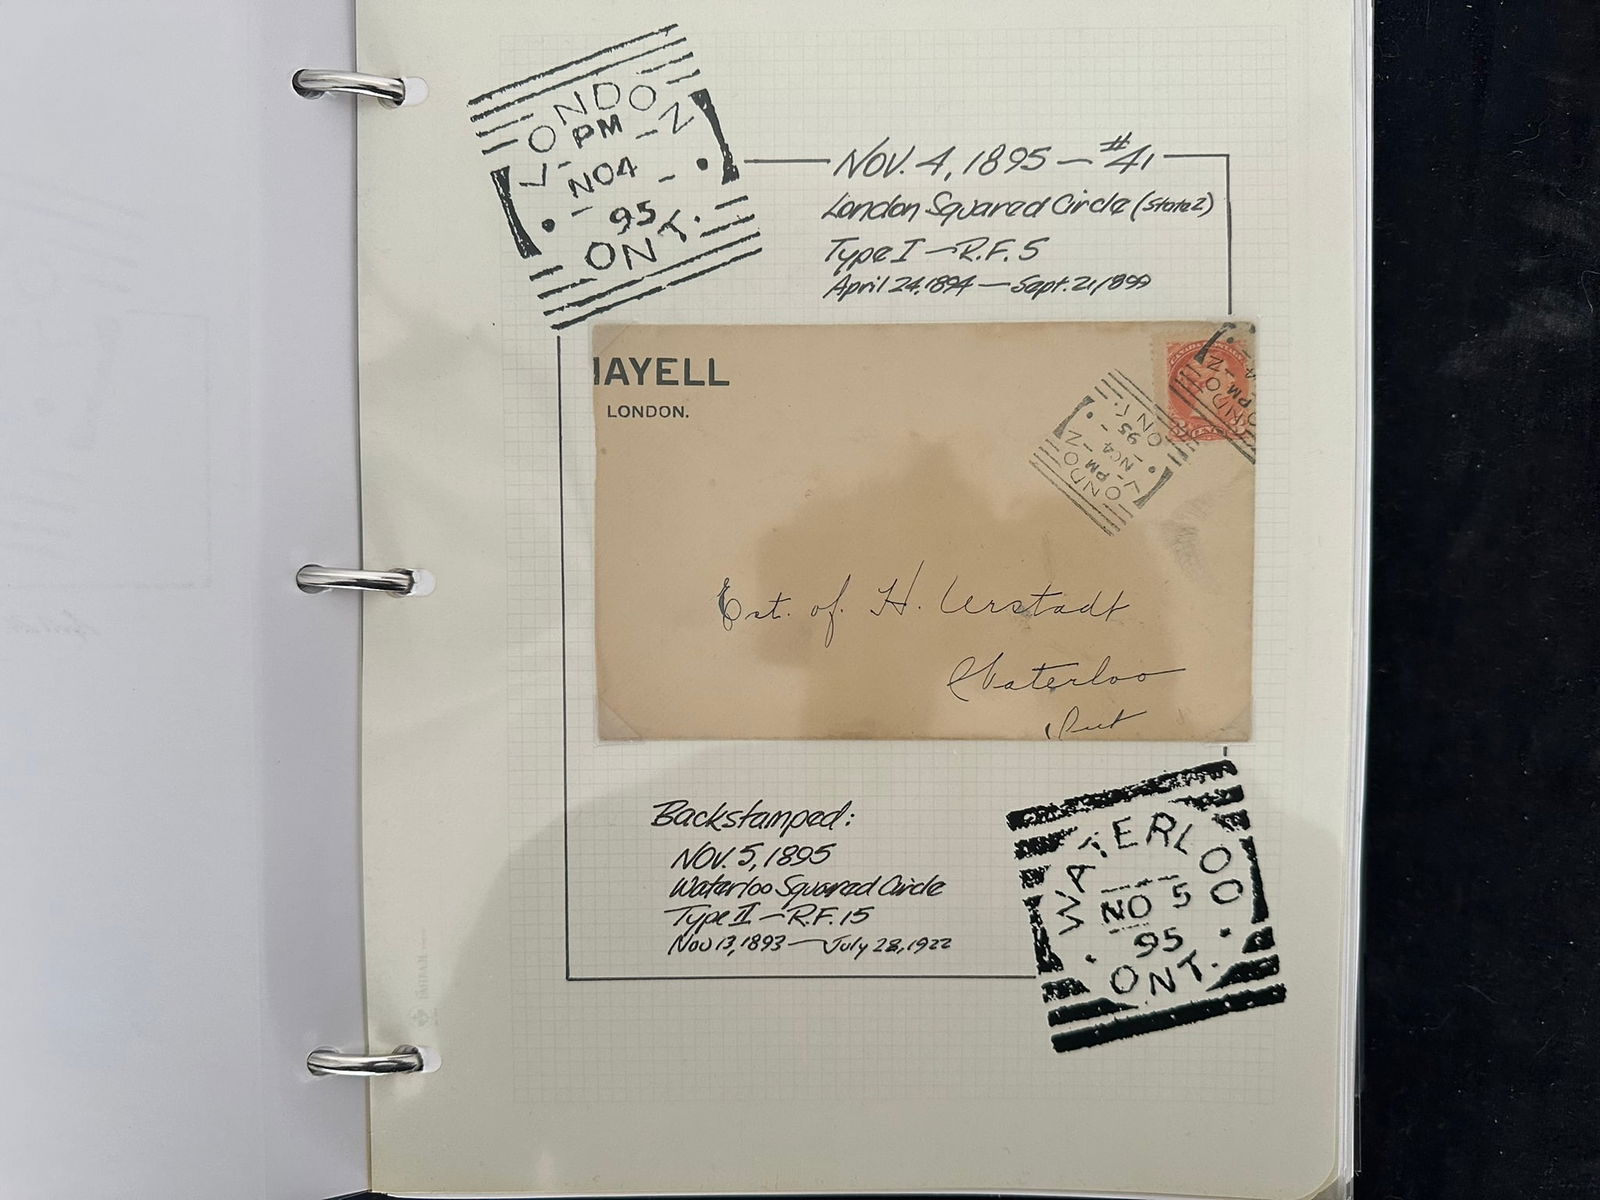 LONDON
PM
NO4
95
ONT.
NOV. 4, 1895 — #41
London Squared Circle (State 2)
Type I — R.F. 5
April 24, 1894 — Sept. 21, 1899
AYELL
LONDON.
LONDON
PM
NO4
95
ONT.
LONDON
PM
Est. of. H. Uerstadt
Waterloo
Ont
Backstamped:
NOV. 5, 1895
Waterloo Squared Circle
Type II — R.F. 15
Nov 13, 1893 — July 28, 1922
WATERLOO
NO 5
95
ONT.